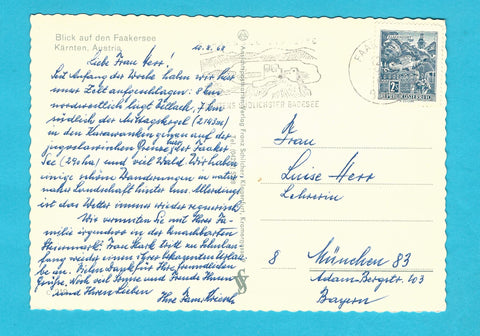 Blick auf den Faakersee
Kärnten, Austria
10.8.68
Liebe Frau Herr!
Seit Anfang der Woche haben wir hier
unser Zelt aufgeschlagen: 8 km
nordwestlich liegt Villach, 7 km
südlich der Mittagskogel (2143m)
in den Karawanken genau auf der
jugoslawischen Grenze, der Faaker
See (240ha) und viel Wald. Wir haben
einige schöne Wanderungen in
nahe Landschaft hinter uns. Allerdings
ist das Wetter immer wieder regnerisch.
Wir vermuten Sie mit Ihrer Fa-
milie irgendwo in der benachbarten
Steiermark. Frau Hark tritt zu Schulan-
fang wieder einen ihrer bekannten Urlau-
be an. Vielen Dank für Ihre freundlichen
Grüße. Noch viel Sonne und Freude Ihnen
und Ihren Lieben
Ihre
REPUBLIK ÖSTERREICH
FAA
BADESEE
Frau
Luise Herr
Lehrerin
8 München 83
Adam-Bergstr. 103
Bayern